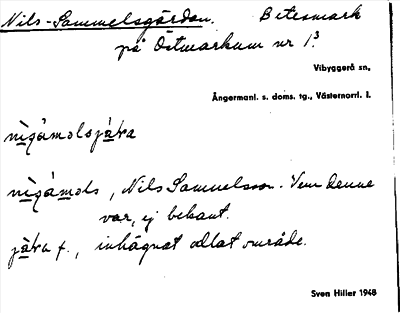 Nils-Sammelsgärdan. Betesmark
på Östmarkum nr 1.3
Vibyggerå sn,
Ångermanl. s. doms. tg., Västernorrl. l.
nìgámolsjära
nìgámols, Nils Samuelsson. Vem denne
var, ej bekant.
jära f., inhägnat odlat område.
Sven Hiller 1948